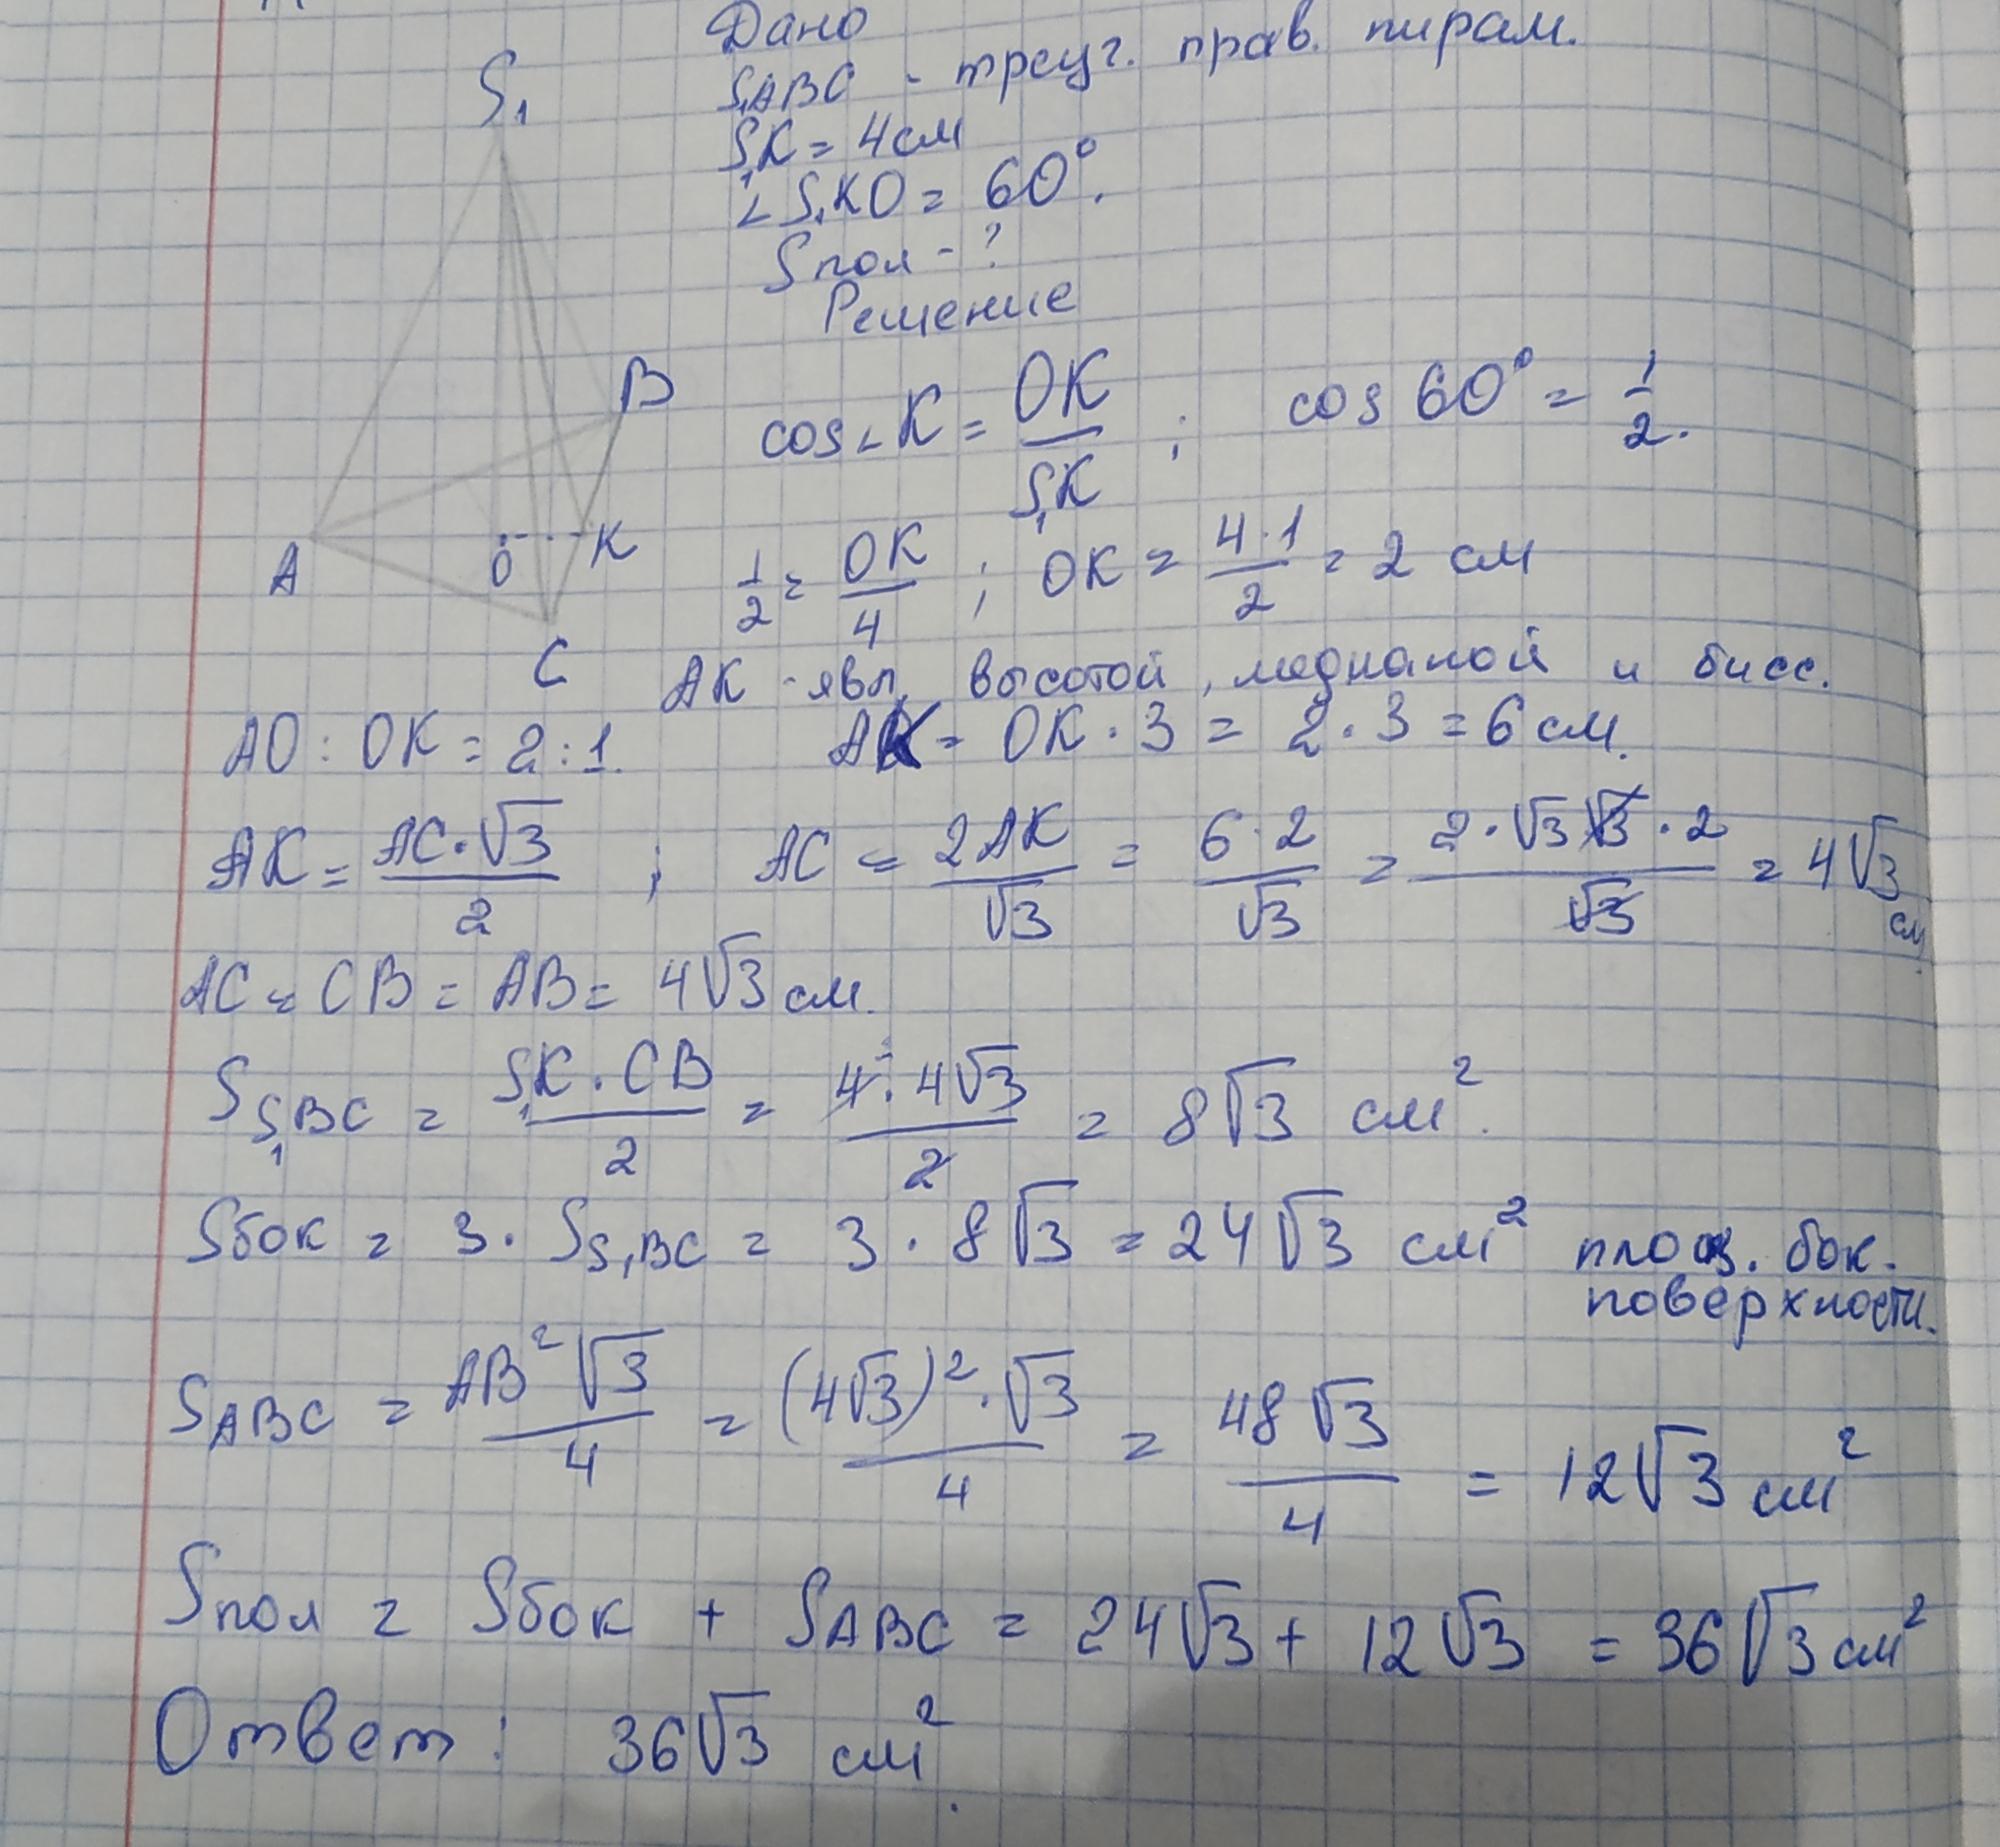 Дано
S₁ABC - треуг. прав. пирам.
S₁K = 4 см
∠S₁KO = 60°.
Sпол - ?
Решение
S₁
B
A
O
K
C
cos∠K = OK/S₁K ; cos 60° = 1/2.
1/2 = OK/4 ; OK = 4·1/2 = 2 см
AK - явл. высотой, медианой и бисс.
AO : OK = 2 : 1. AK = OK · 3 = 2 · 3 = 6 см.
AK = AC·√3/2 ; AC = 2AK/√3 = 6·2/√3 = 2·√3√3·2/√3 = 4√3 см
AC = CB = AB = 4√3 см.
S S₁BC = S₁K·CB/2 = 4·4√3/2 = 8√3 см².
Sбок = 3 · S S₁BC = 3 · 8√3 = 24√3 см² площ. бок.
поверхности.
S ABC = AB²√3/4 = (4√3)²·√3/4 = 48√3/4 = 12√3 см²
Sпол = Sбок + S ABC = 24√3 + 12√3 = 36√3 см²
Ответ: 36√3 см².